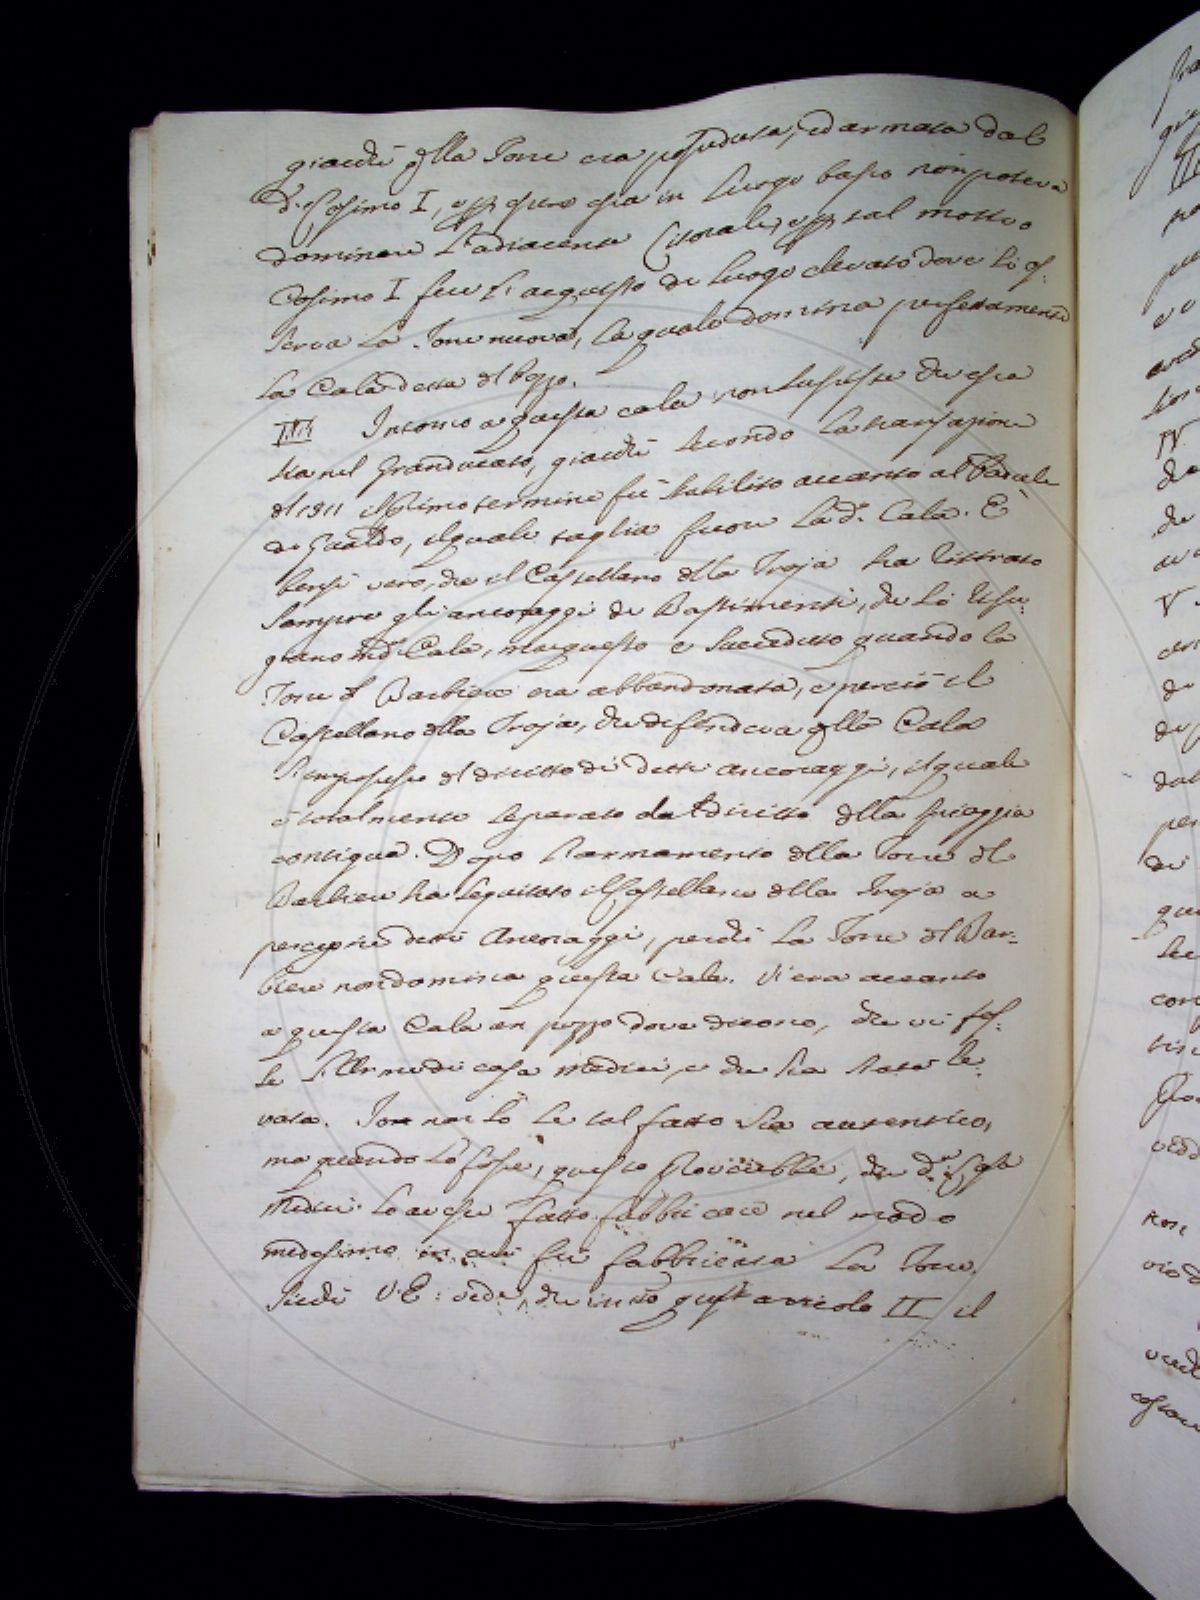 giacchè qlla Torre era posseduta, ed armata dal
d.º Cosimo I, e pp essere essa in luogo basso non poteva
dominare l'adiacente Litorale, e pp tal motivo
Cosimo I fece l'acquisto di luogo elevato dove si os-
serva la Torre nuova, la quale domina perfettamente
la Cala detta del Pozzo.
III Intorno a questa cala non sussiste che essa
sia nel Granducato, giacchè secondo la transazione
il primo termine fù stabilito accanto al Padule
di Gualdo, il quale taglia fuori la d.ª Cala. È
bensì vero, che il Castellano dlla Troja ha tirato
sempre gli ancoraggi di Bastimenti, che si refu-
giano in dª Cala, ma questo è succeduto quando la
Torre dl Barbiere era abbandonata, e perciò il
Castellano dlla Troja, che difendeva qlla Cala
s'impossessò dl diritto di detti ancoraggi, il quale
è totalmente separato dal diritto dlla spiaggia
contigua. Dopo l'armamento dlla Torre dl
Barbiere ha seguitato il Castellano dlla Troja a
percepire detti Ancoraggi, perchè la Torre dl Bar-
biere non domina questa Cala. Vi era accanto
a questa Cala un pozzo dove dicono, che vi fos-
se l'Arme di casa Medici, e che sia stata le-
vata. Io non sò se tal fatto sia autentico,
ma quando lo fosse, questo proverebbe, che d.ª Casa
Medici lo avesse fatto fabbricare nel modo
medesimo in cui fù fabbricata la Torre.
Sicchè V.E: vede, che in tto quest'articolo II il